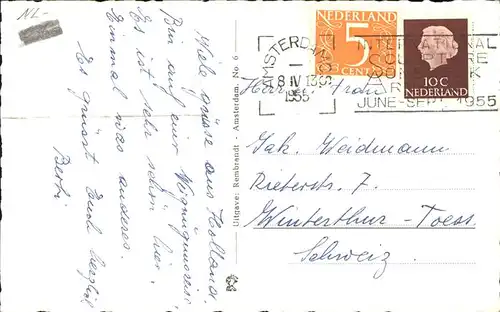 NL-
NEDERLAND
5
CENT
10 C
NEDERLAND
AMSTERDAM
8 IV 13
1955
INTERNATIONAL
JUNE-SEPT. 1955
Viele grüsse aus Holland.
Bin auf einer Vergnügungsreise
Es ist sehr schön hier.
Einmal was anderes.
Es grüsst Euch herzlich
Berti
Uitgave: Rembrandt - Amsterdam. No 6
Herr u. Frau
Jak. Weidmann
Rieterstr. 7.
Winterthur-Toess.
Schweiz.